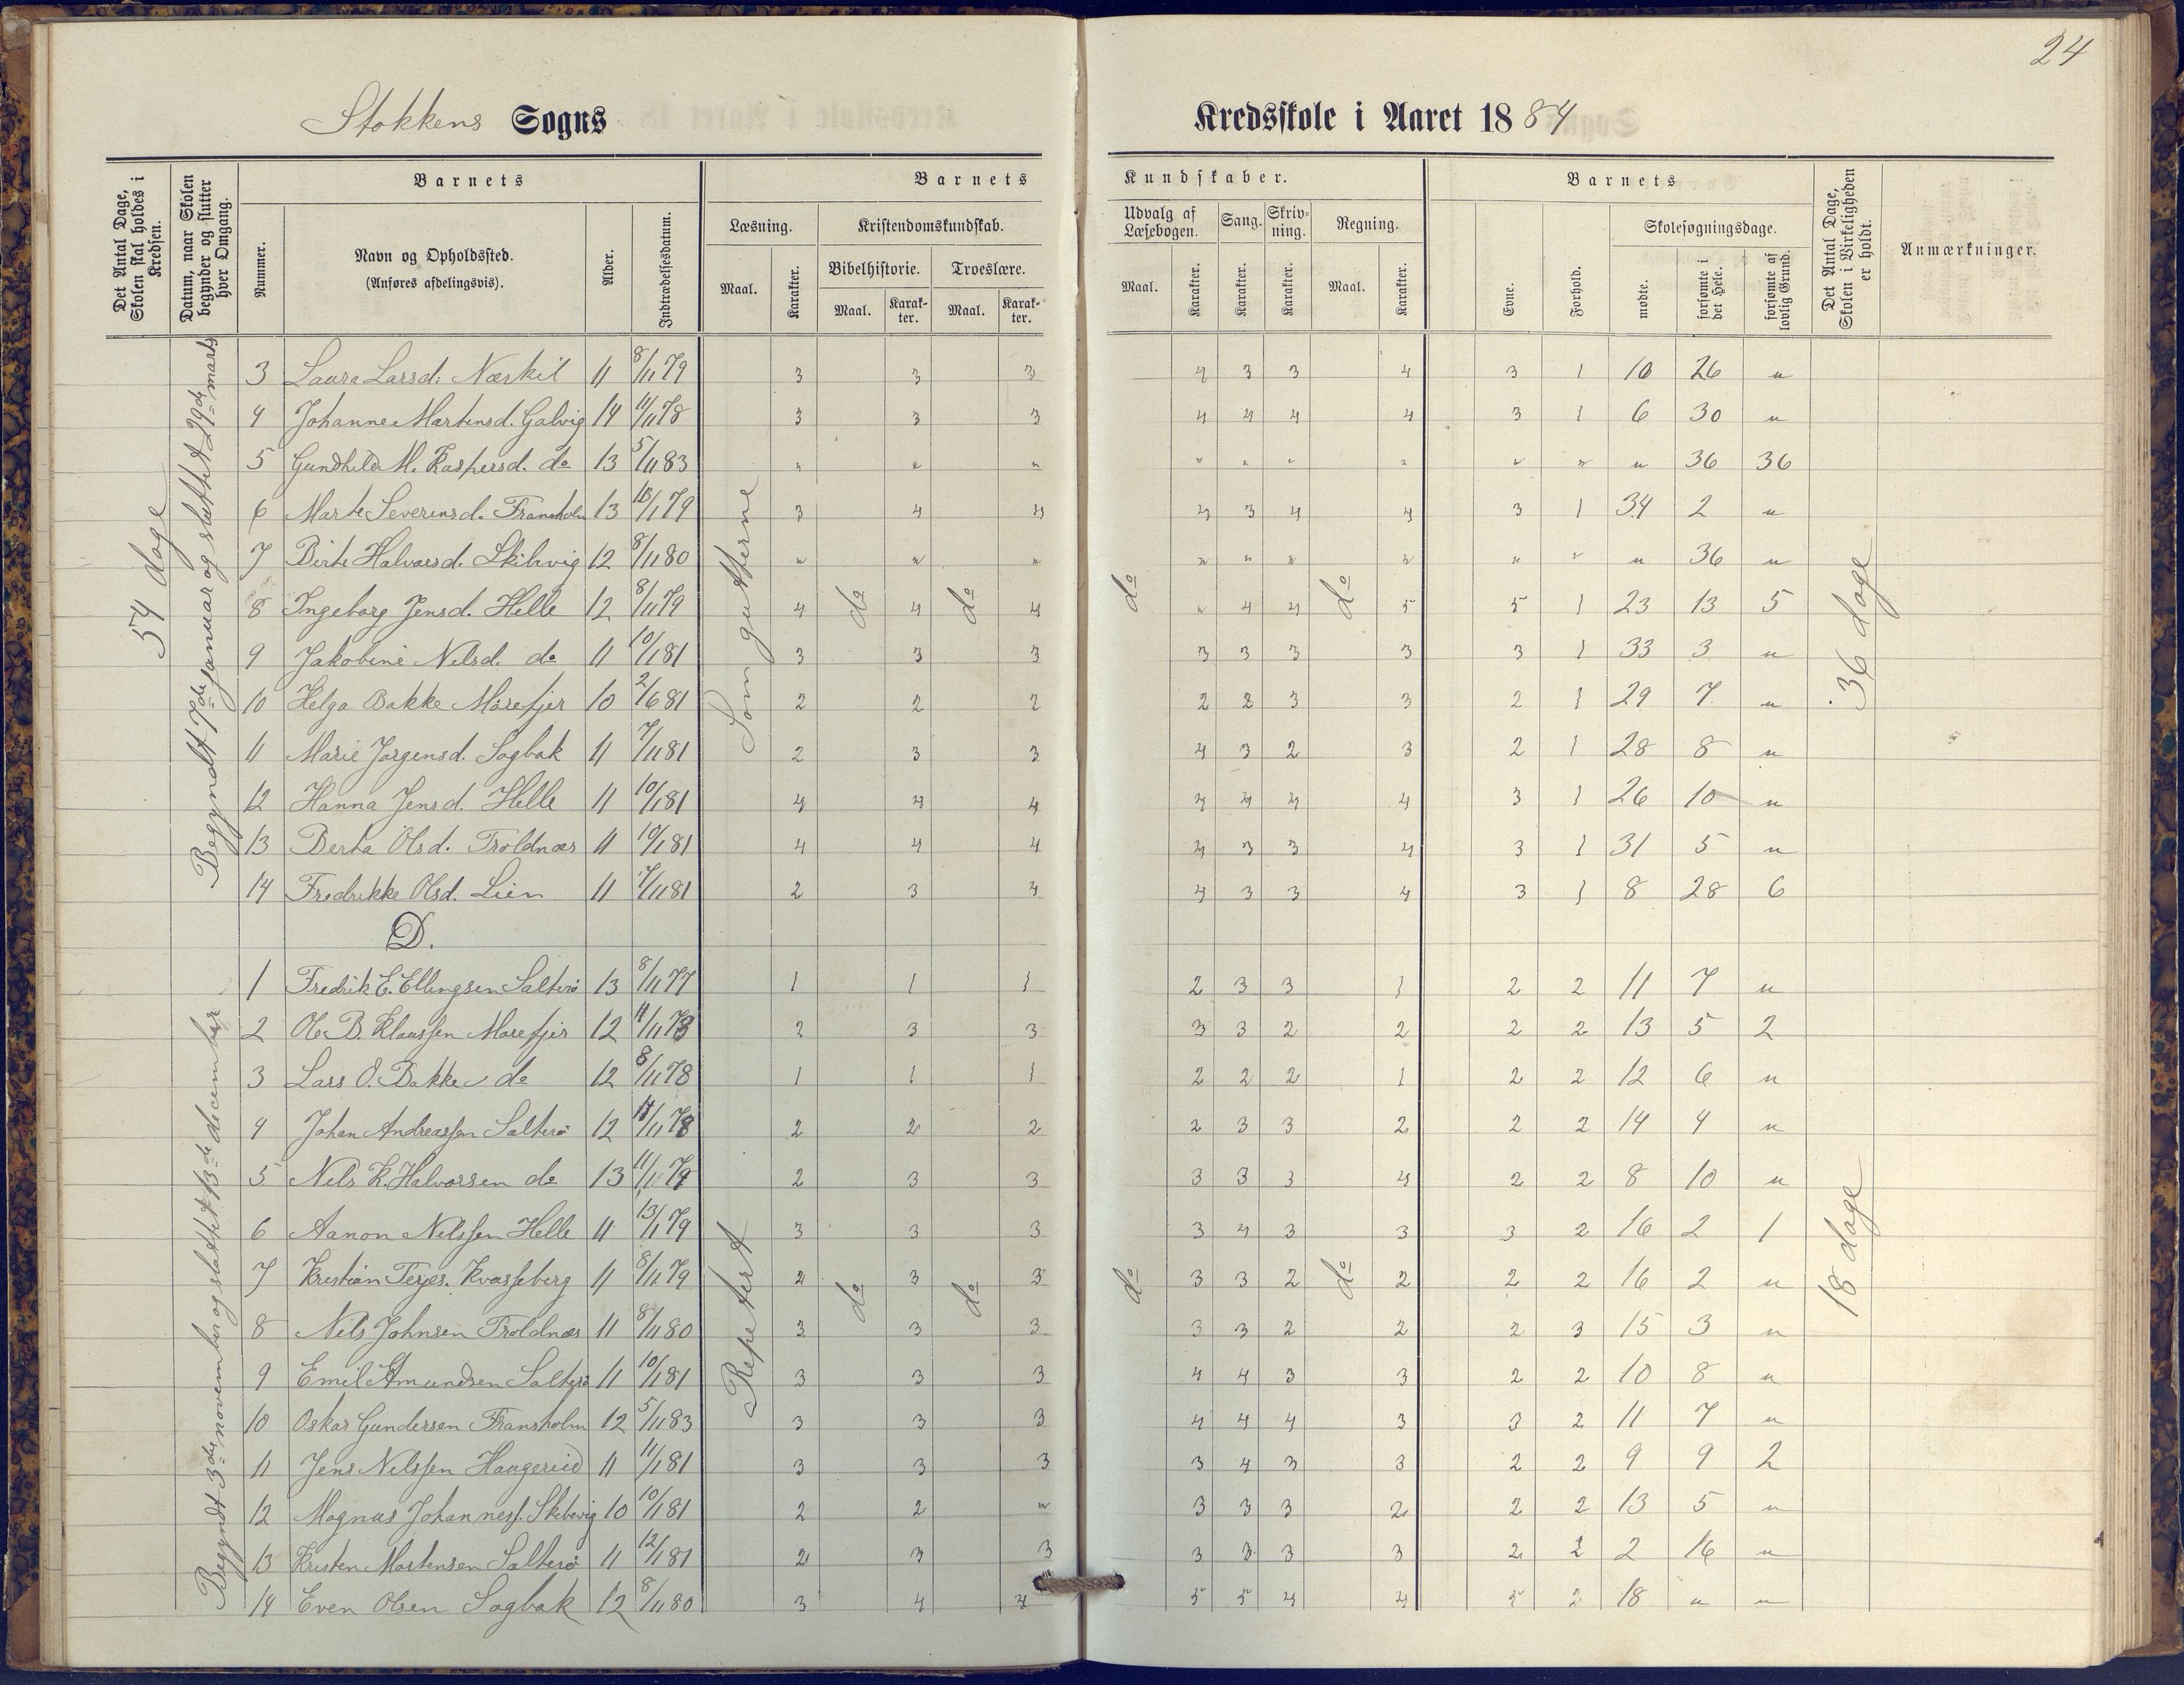 24
Stokkens Sogns Kredsskole i Aaret 1884
Det Antal Dage, Skolen skal holdes i Kredsen.
Datum, naar Skolen begynder og slutter hver Omgang.
Barnets
Nummer.
Navn og Opholdssted.
(Anføres afdelingsvis).
Alder.
Indtrædelsesdatum.
Barnets Kundskaber.
Læsning.
Maal. Karakter.
Kristendomskundskab.
Bibelhistorie. Troeslære.
Maal. Karakter. Maal. Karakter.
Udvalg af Læsebogen.
Maal. Karakter.
Sang.
Karakter.
Skrivning.
Karakter.
Regning.
Maal. Karakter.
Barnets
Evne. Forhold.
Skolesøgningsdage.
mødte. forsømte i det Hele. forsømte af lovlig Grund.
Det Antal Dage, Skolen i Virkeligheden er holdt.
Anmærkninger.
54 dage
Begyndt 7de januar og sluttet 29de marts
Som gutterne do do do do
36 dage
3 Laura Larsd. Næskil 11 8/11 79 3 3 3 4 3 3 4 3 1 10 26 "
4 Johanne Martensd. Galvig 14 11/11 78 3 3 3 4 4 4 4 3 1 6 30 "
5 Gundhild M. Kaspersd. do 13 5/11 83 " " " " " " " " " " 36 36
6 Marte Severinsd. Fransholm 13 10/1 79 3 4 4 4 3 4 4 3 1 34 2 "
7 Birte Halvorsd. Skibvig 12 8/11 80 " " " " " " " " " " 36 "
8 Ingeborg Jensd. Helle 12 8/11 79 4 4 4 " 4 4 5 5 1 23 13 5
9 Jakobine Nilsd. do 11 10/1 81 3 3 3 3 3 3 3 3 1 33 3 "
10 Helga Bakke Mørefjer 10 2/6 81 2 2 2 2 2 3 3 2 1 29 7 "
11 Marie Jørgensd. Sagbak 11 7/11 81 2 3 3 4 3 2 3 2 1 28 8 "
12 Hanna Jensd. Helle 11 10/1 81 4 4 4 4 4 4 4 3 1 26 10 "
13 Berta Olsd. Troldnæs 11 10/1 81 4 4 4 4 3 3 4 3 1 31 5 "
14 Fredrikke Olsd. Lien 11 7/11 81 2 3 4 4 3 3 4 3 1 8 28 6
D.
Begyndt 3de november og sluttet 13de december
Repetert do do do do
18 dage
1 Fredrik E. Ellingsen Salterø 13 8/11 77 1 1 1 2 3 3 1 2 2 11 7 "
2 Ol B. Klaussen Mørefjer 12 11/11 78 2 3 3 3 3 2 2 2 2 13 5 2
3 Lars O. Bakke do 12 8/11 78 1 1 1 2 2 2 1 2 2 12 6 "
4 Johan Andreassen Salterø 12 11/11 78 2 2 2 2 3 3 2 2 2 14 4 "
5 Nils K. Halvorsen do 13 11/11 79 2 3 3 3 3 3 4 2 2 8 10 "
6 Aanon Nilssen Helle 11 13/1 79 3 3 3 3 4 3 3 3 2 16 2 1
7 Kristian Terjes. Kvasseberg 11 8/11 79 2 3 3 3 3 2 2 2 2 16 2 "
8 Nils Johnsen Troldnæs 11 8/11 80 3 3 3 3 3 2 2 2 3 15 3 "
9 Emil Amundsen Salterø 11 10/1 81 3 3 3 4 4 3 3 2 2 10 8 "
10 Oskar Gundersen Fransholm 12 5/11 83 3 3 3 4 4 4 3 3 2 11 7 "
11 Jens Nilssen Haugeried 11 11/1 81 3 3 3 3 4 3 3 2 2 9 9 2
12 Magnus Johanness. Skibevig 10 10/1 81 2 2 " 3 3 3 2 2 2 13 5 "
13 Kristen Mortensen Salterø 11 12/1 81 2 3 3 3 3 3 3 2 2 2 16 "
14 Even Olsen Sagbak 12 8/11 80 3 4 4 5 5 4 4 5 2 18 " "